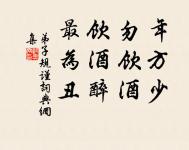 年方少
勿飲酒
飲酒醉
最為丑
弟子規謹詞典網
集